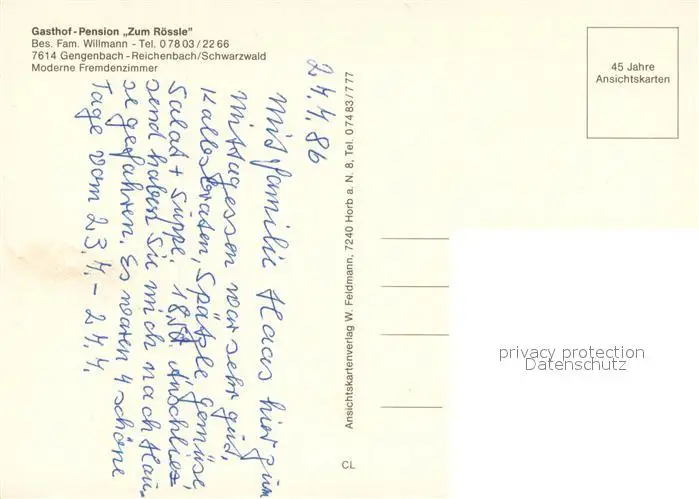 Gasthof-Pension „Zum Rössle"
Bes. Fam. Willmann - Tel. 0 78 03 / 22 66
7614 Gengenbach - Reichenbach/Schwarzwald
Moderne Fremdenzimmer
24.4.86
Mit Familie Haas hier zum
Mittagessen war sehr gut,
Kalbsbraten, Spätzle, Gemüse,
Salat + Suppe. Anschlies-
send haben sie mich nach Hau-
se gefahren. Es waren 4 schöne
Tage vom 23.4. - 27.4.
Ansichtskartenverlag W. Feldmann, 7240 Horb a. N. 8, Tel. 0 74 83 / 7 77
CL
45 Jahre
Ansichtskarten
privacy protection
Datenschutz